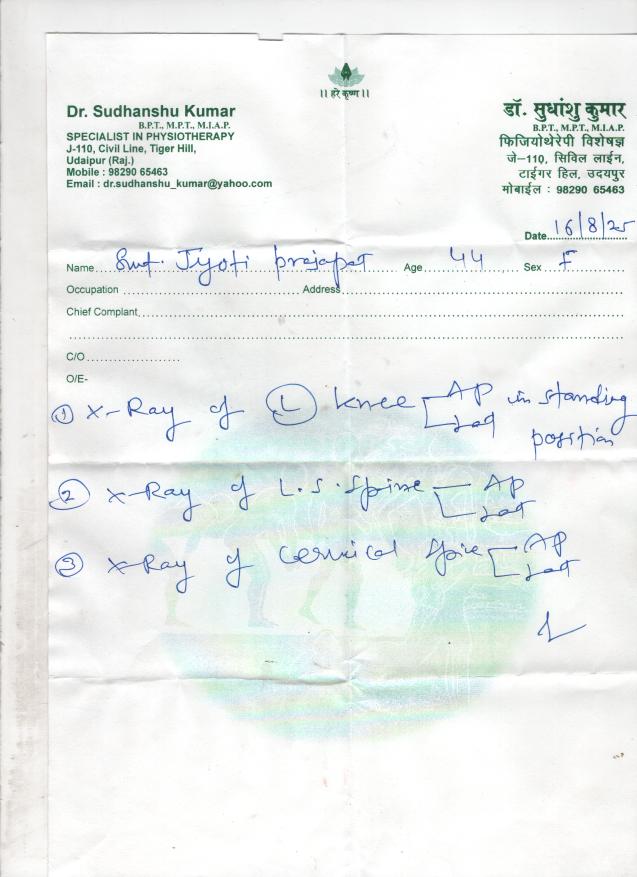 || हरे कृष्ण ||
Dr. Sudhanshu Kumar
B.P.T., M.P.T., M.I.A.P.
SPECIALIST IN PHYSIOTHERAPY
J-110, Civil Line, Tiger Hill,
Udaipur (Raj.)
Mobile : 98290 65463
Email : dr.sudhanshu_kumar@yahoo.com
डॉ. सुधांशु कुमार
B.P.T., M.P.T., M.I.A.P.
फिजियोथेरेपी विशेषज्ञ
जे-110, सिविल लाईन,
टाईगर हिल, उदयपुर
मोबाईल : 98290 65463
Date 16/8/25
Name Smt. Jyoti prajapat Age 44 Sex F
Occupation Address
Chief Complant
C/O
O/E-
① X-Ray of Ⓛ knee AP in standing
Lat position
② X-Ray of L.S. Spine AP
Lat
③ X-Ray of cervical spine AP
Lat